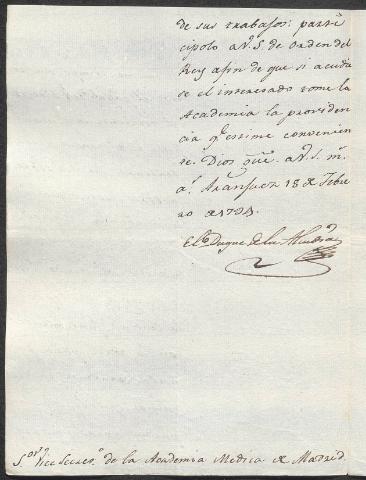 de sus trabajos: parti
cipolo a V.S. de orden del
Rey afin de que si acudie
se el interesado tome la
Academia la providen
cia q.e estime convenien
te. Dios gũe. a V.S. m.s
a.s Aranjuez 18 de Febre
ro de 1794.
El Duque de la Alcudia
S.or Vice Secret.o de la Academia Medica de Madrid.